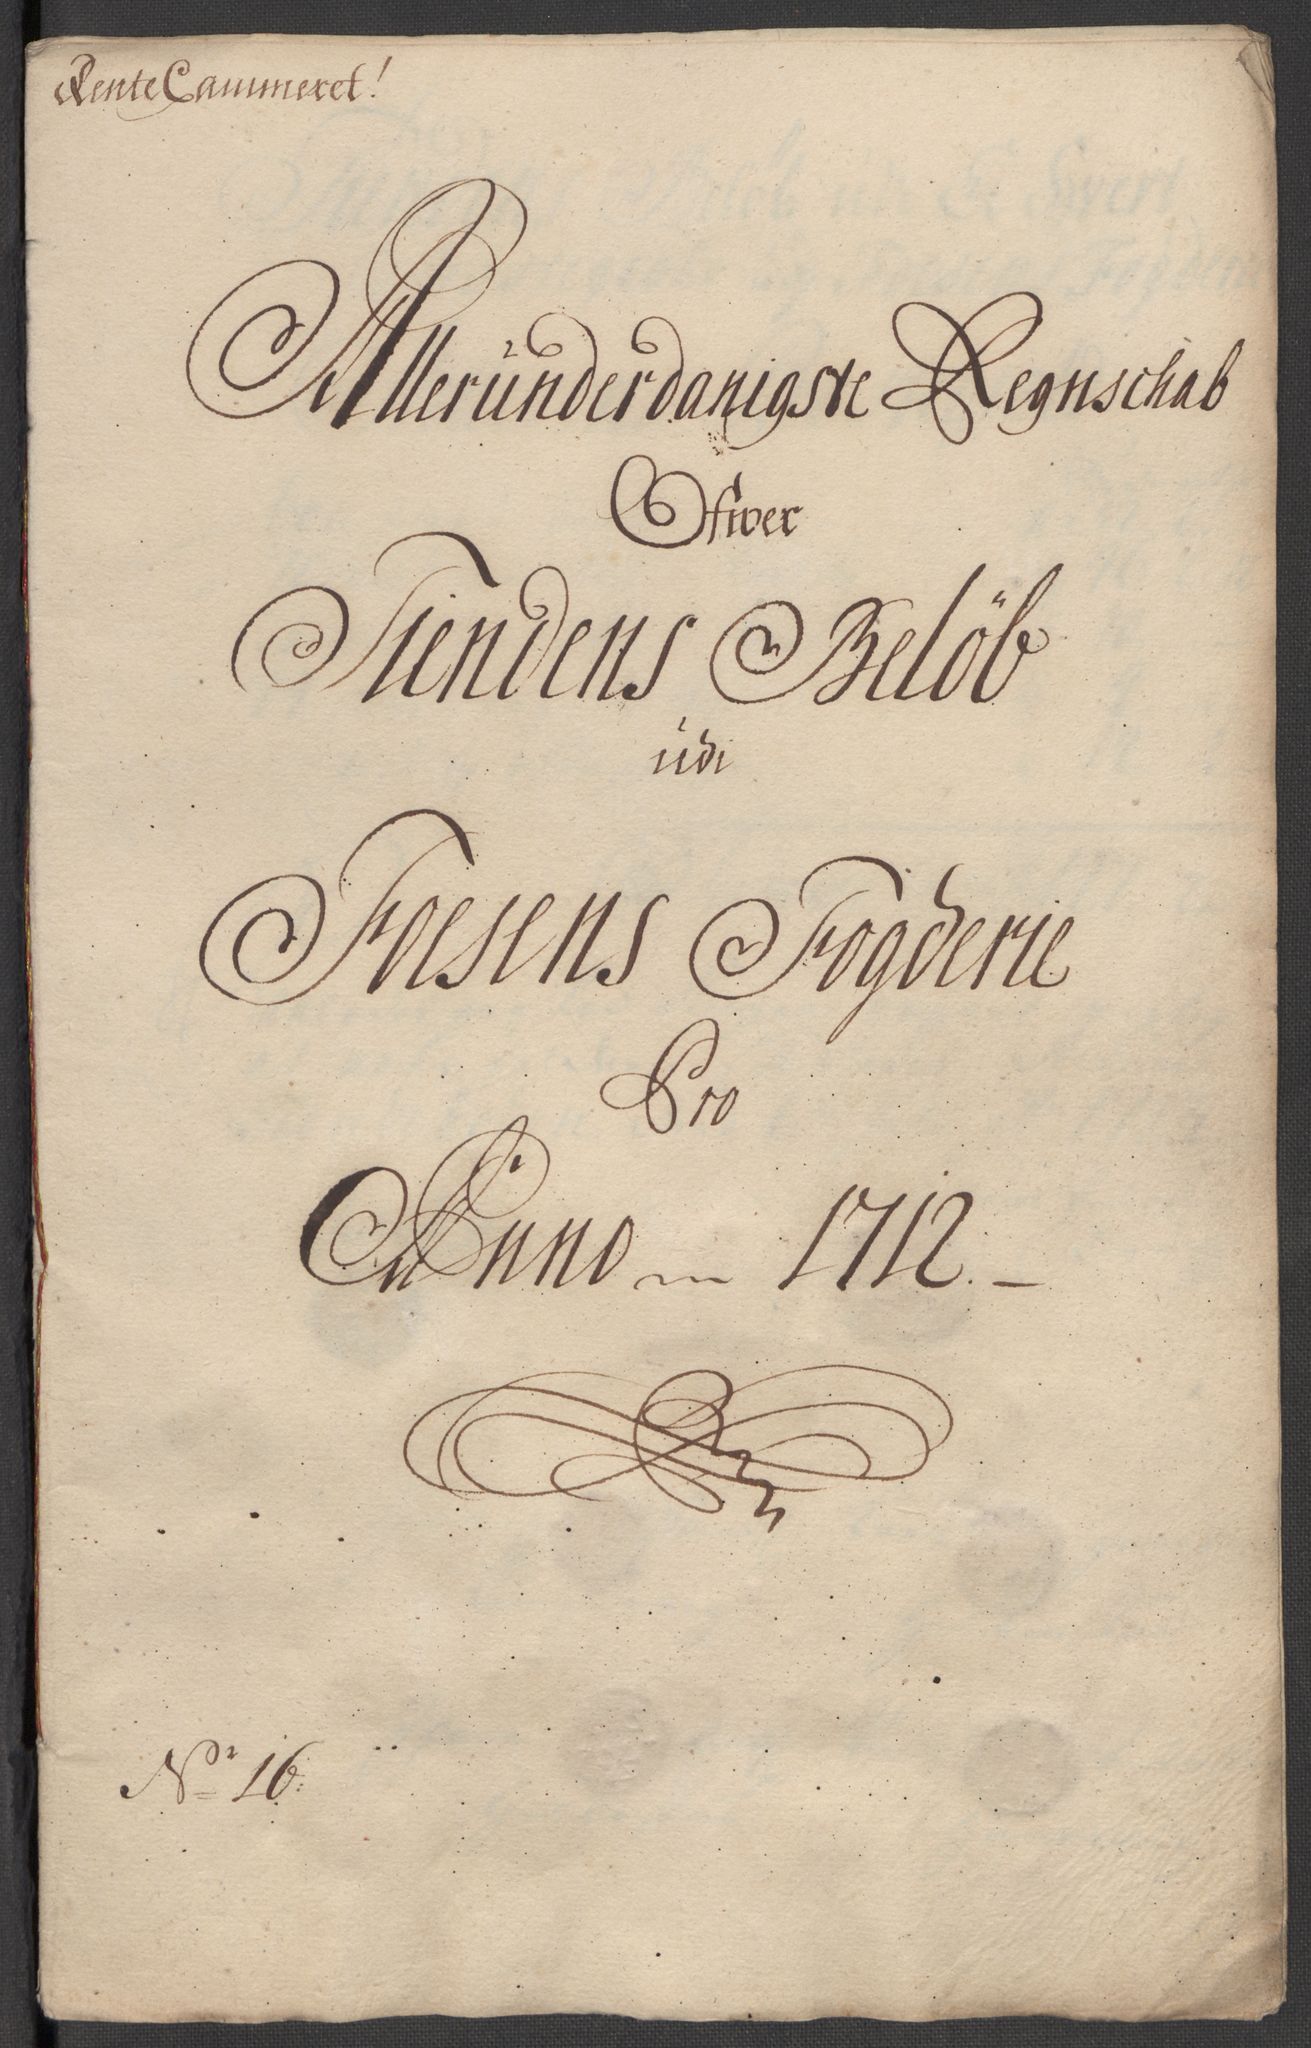 RenteCammeret!
Alleründerdanigste Regnschab
Ofwer
Tiendens Belöb
üdi
Foesens Fogderie
Pro
Anno 1712.
No 16: